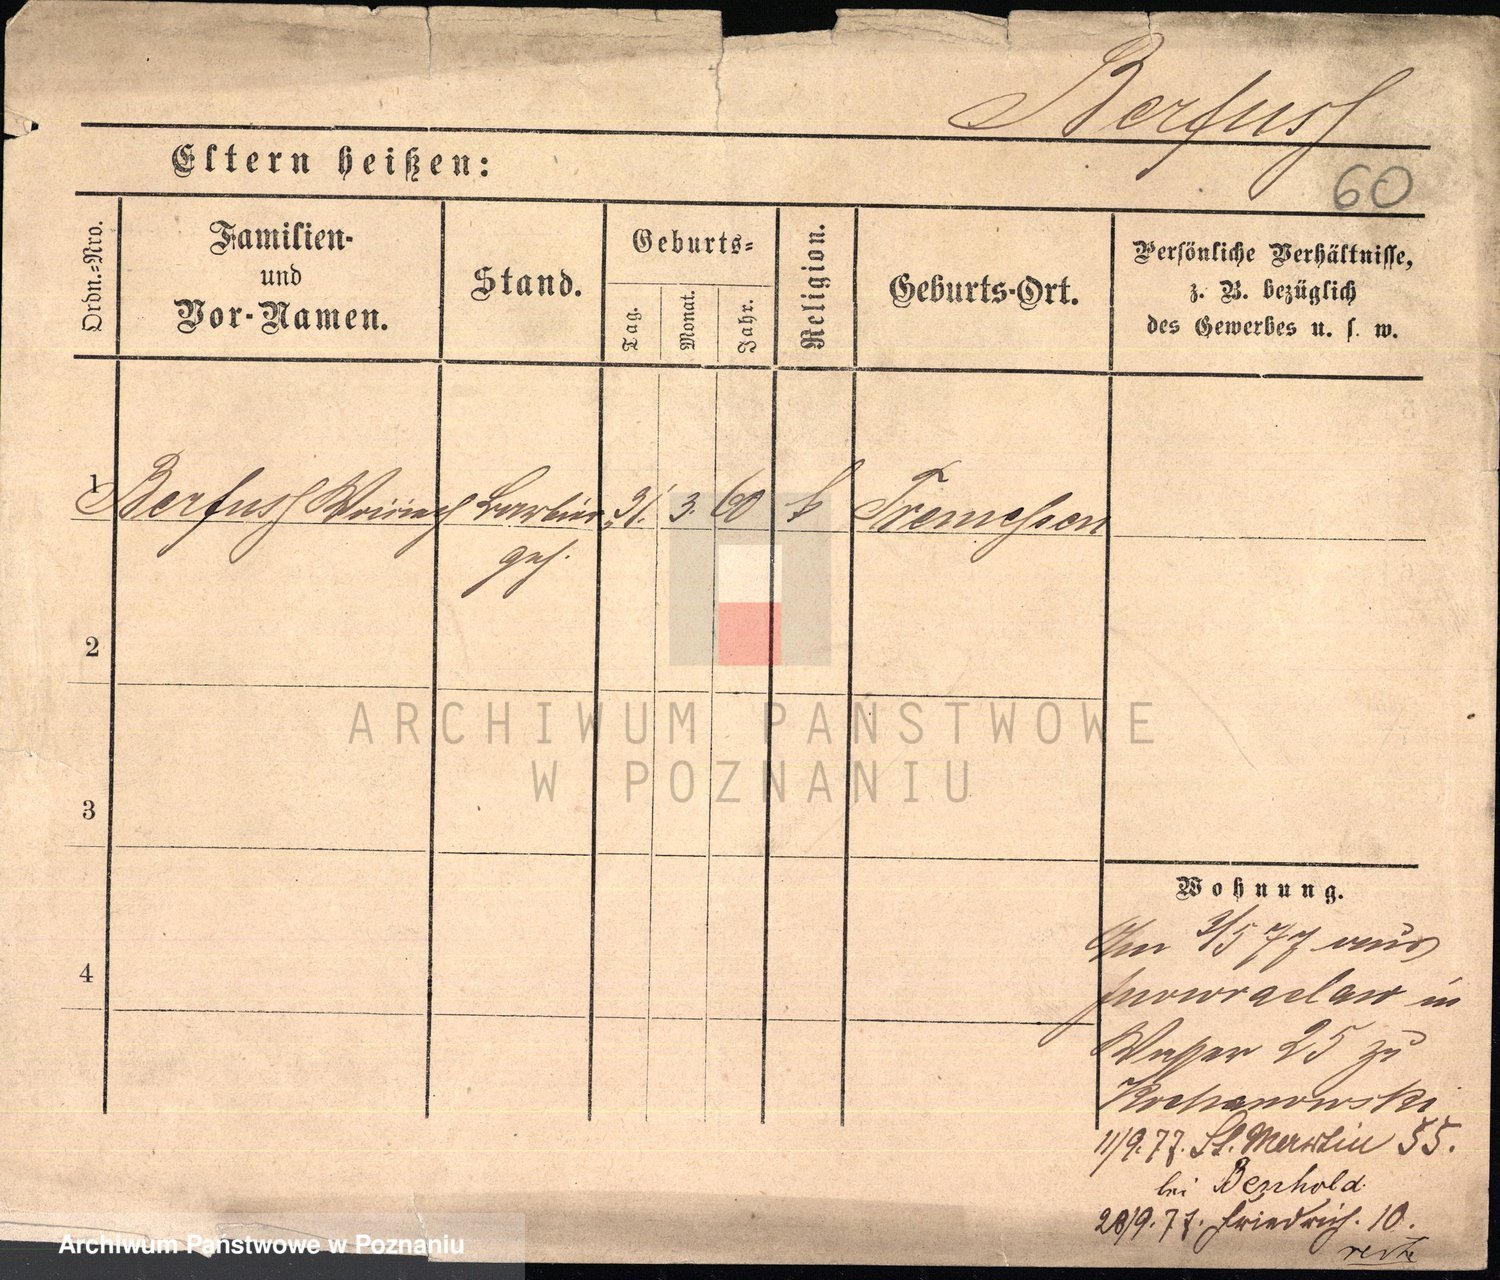 Berfusch
Eltern heißen:
60
Ordn.-Nro.
Familien-
und
Vor-Namen.
Stand.
Geburts-
Tag.
Monat.
Jahr.
Religion.
Geburts-Ort.
Persönliche Verhältnisse,
z. B. bezüglich
des Gewerbes u. s. w.
1 Berfusch Barbier 31. 3. 60 k Tremessen
geh.
2
3
4
Wohnung.
Am 3/5 77 aus
Inowraclaw in
Wasser 25 zu
Kochanowski
11/9. 77. St. Martin 55.
bei Benhold
28/9. 77. Friedrich. 10.
ARCHIWUM PAŃSTWOWE
W POZNANIU
Archiwum Państwowe w Poznaniu